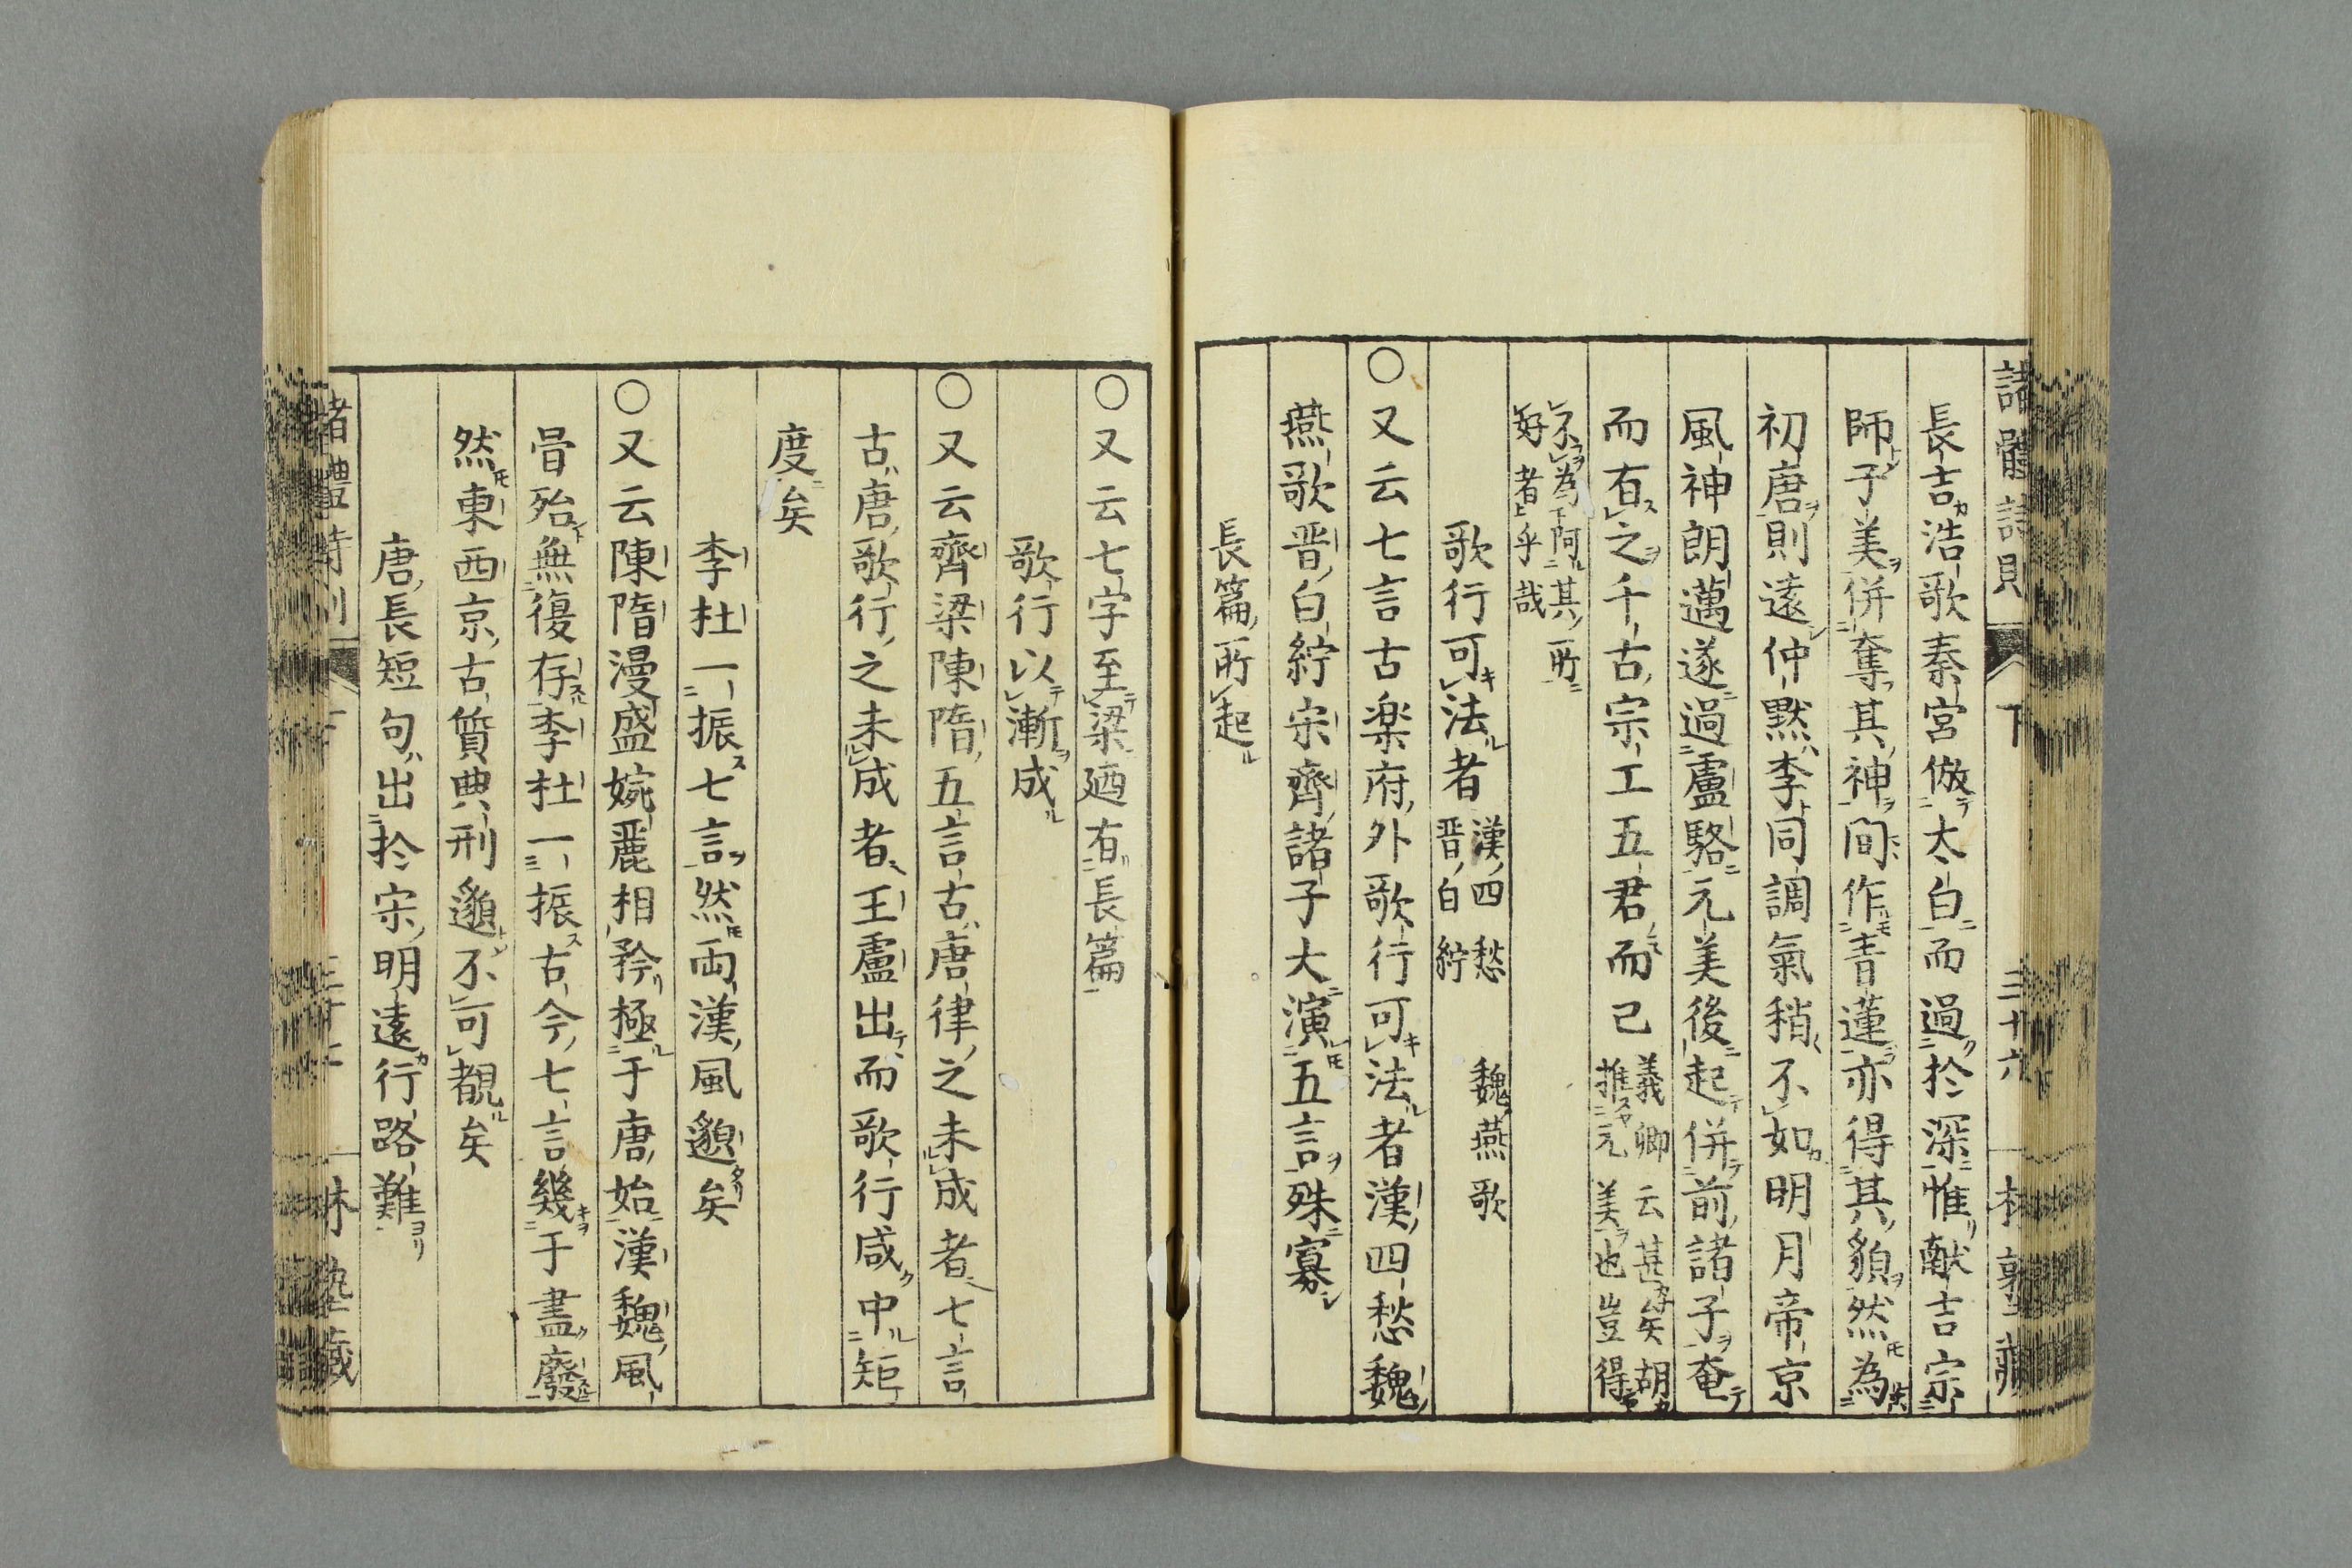 諸體詩則 下 三十六
長吉浩歌秦宮倣太白而過於深惟献吉宗
師子美併奪其神間作青蓮亦得其貌然為
初唐則遠仲黙李同調氣稍不如明月帝京
風神朗邁遂過盧駱元美後起併前諸子奄
而有之千古宗工五君而已義卿云甚矣胡
推元美也豈得
不為阿其所
好者乎哉
歌行可法者漢四愁 魏燕歌
晋白紵
〇又云七言古楽府外歌行可法者漢四愁魏
燕歌晋白紵宋齊諸子大演五言殊寡
長篇所起
〇又云七字至梁廼有長篇
歌行以漸成
〇又云齊梁陳隋五言古唐律之未成者七言
古唐歌行之未成者王盧出而歌行咸中矩
度矣
李杜一振七言然両漢風邈矣
〇又云陳隋漫盛婉麗相矜極于唐始漢魏風
骨殆無復存李杜一振古今七言幾于盡廢
然東西京古質典刑邈不可覩矣
唐長短句出於宋明遠行路難